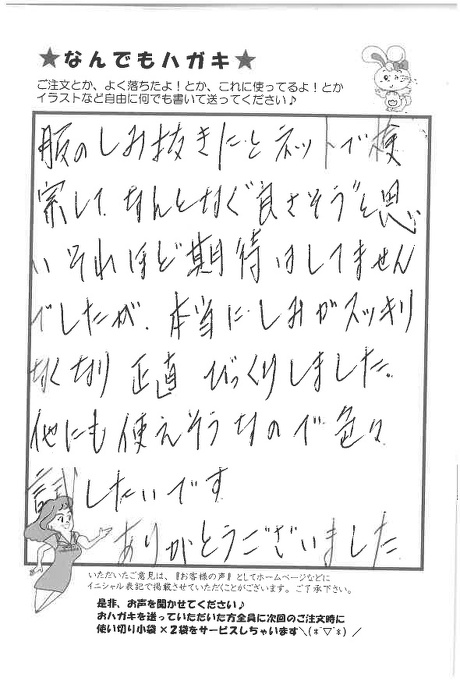 ★なんでもハガキ★
ご注文とか、よく落ちたよ！とか、これに使ってるよ！とか
イラストなど自由に何でも書いて送ってください♪
服のしみ抜きにとネットで検
索して、なんとなく"良さそう"と思
いそれほど期待はしてません
でしたが、本当にしみがスッキリ
なくなり正直びっくりしました。
他にも使えそうなので色々
試したいです
ありがとうございました
いただいたご意見は、『お客様の声』としてホームページなどに
イニシャル表記で掲載させていただくことがございます。ご了承下さい。
是非、お声を聞かせてください♪
おハガキを送っていただいた方全員に次回のご注文時に
使い切り小袋×２袋をサービスしちゃいます＼(*´▽`*)／